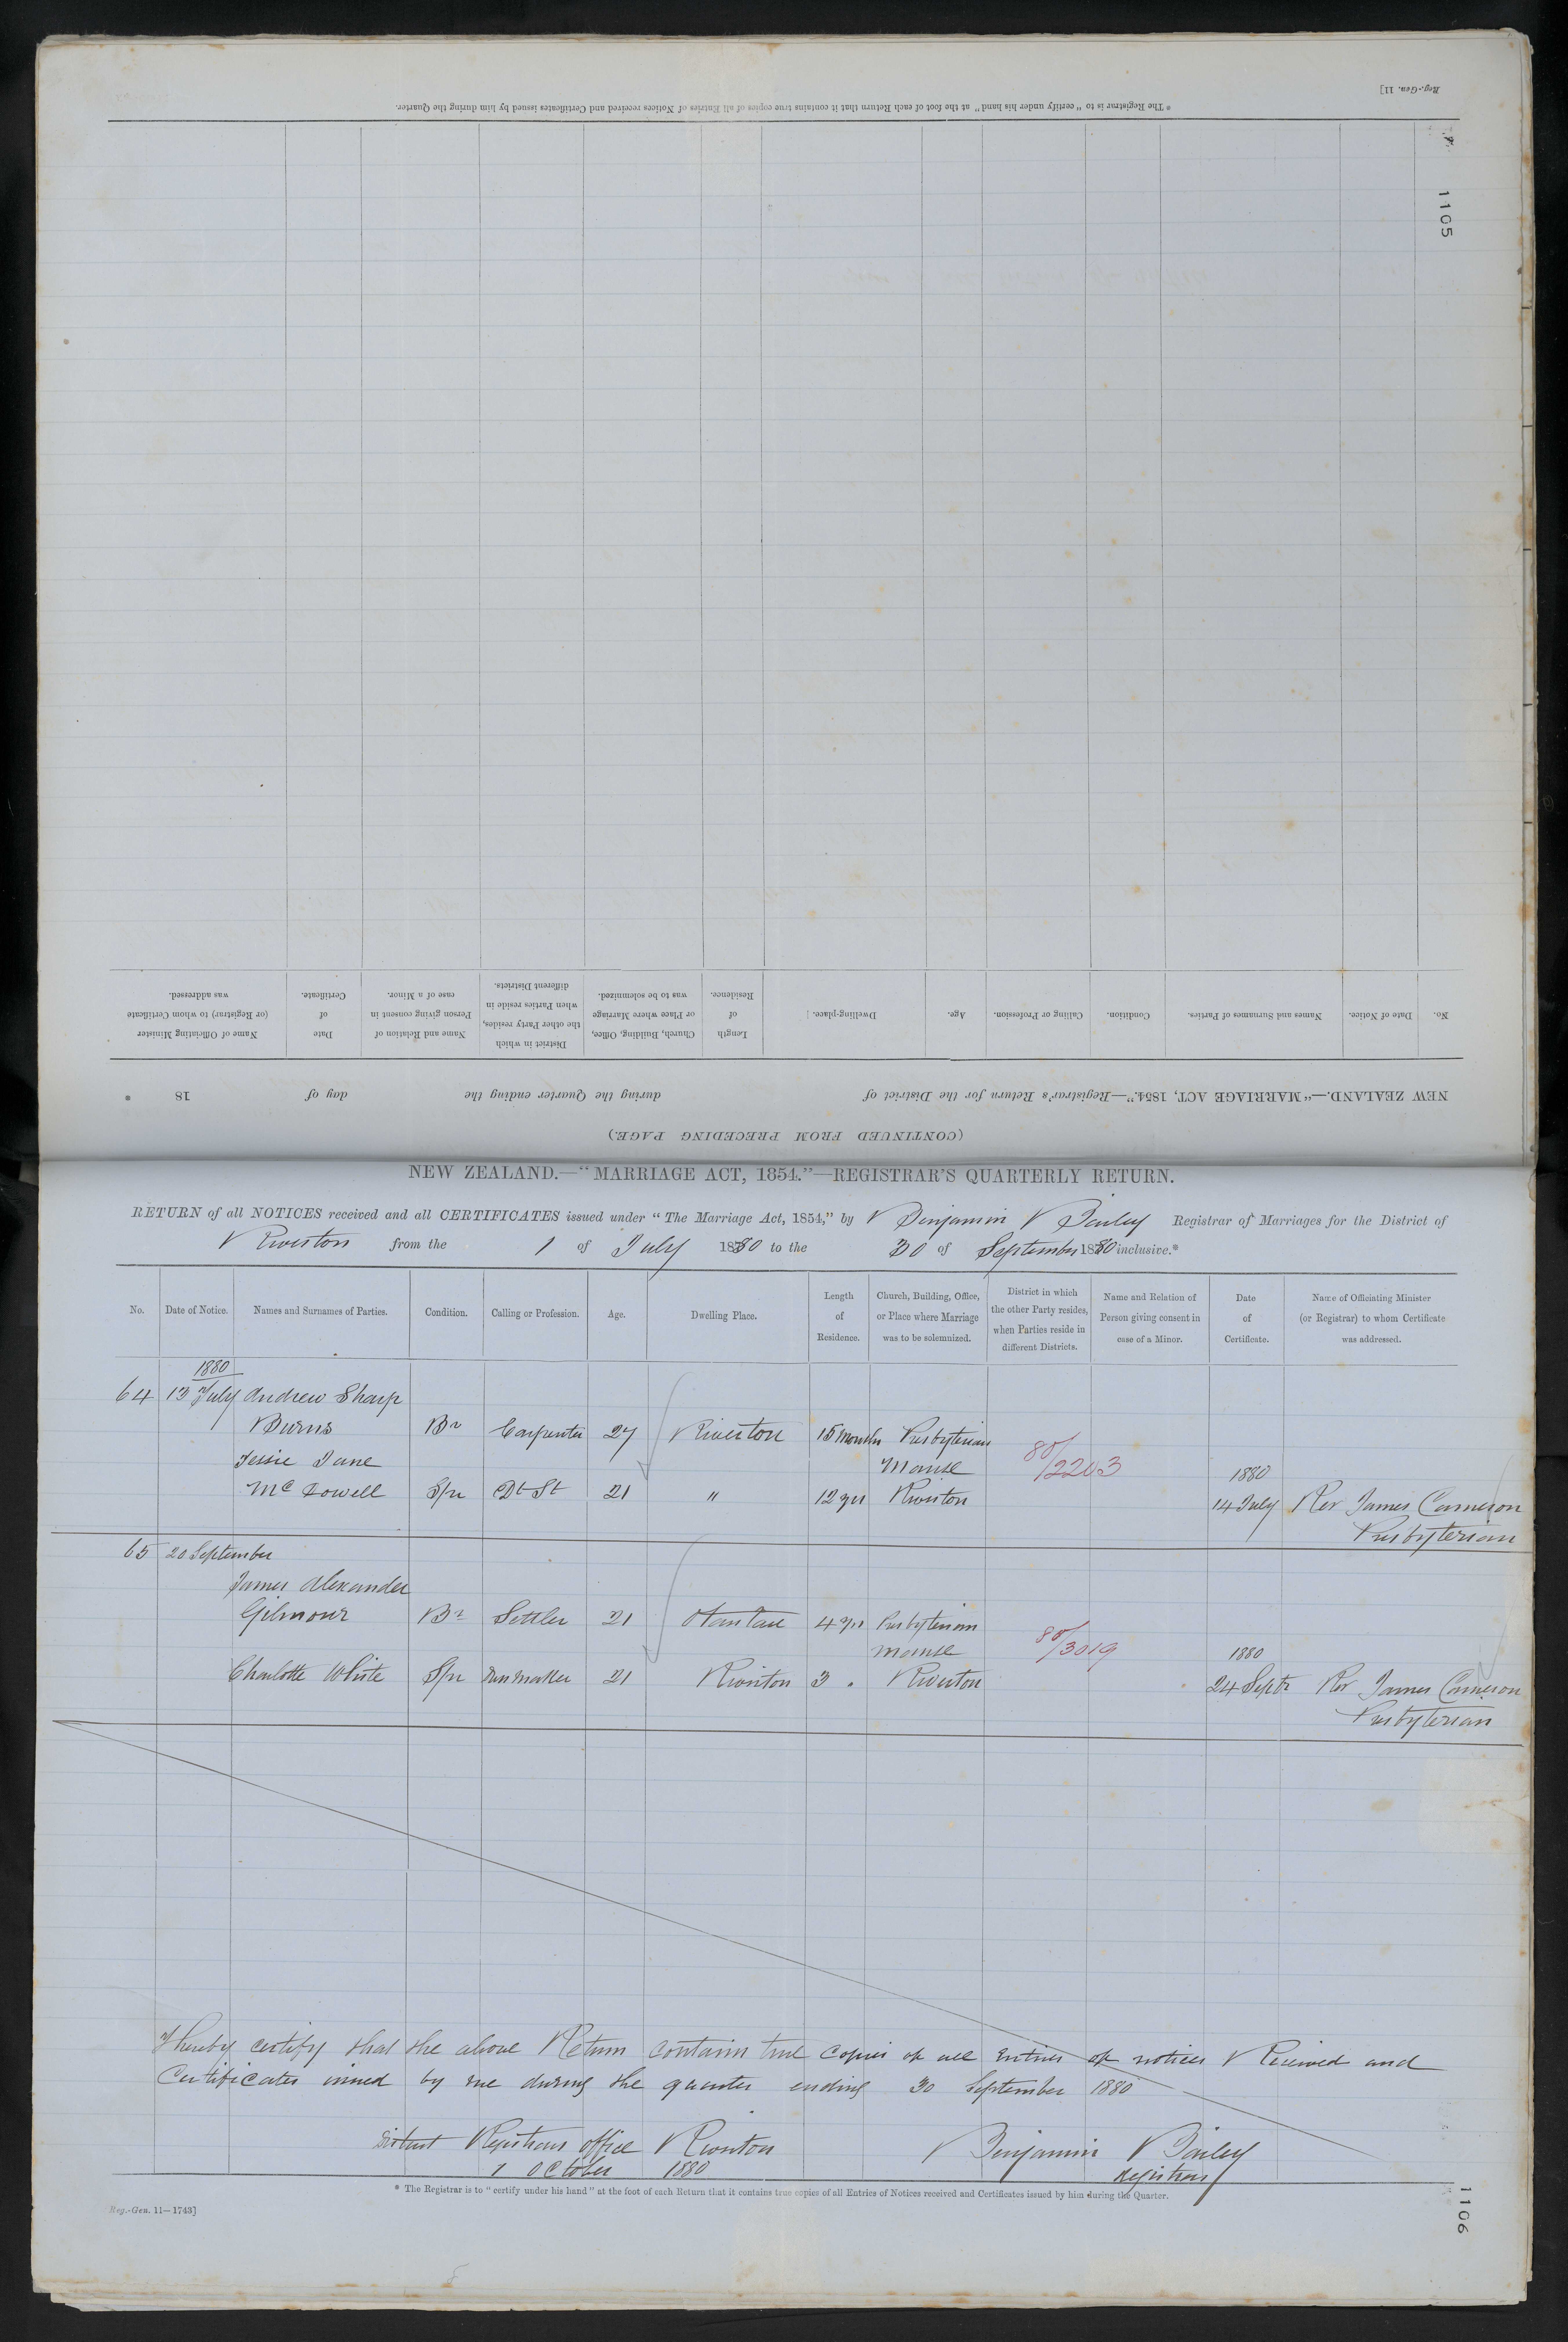 Reg.-Gen. 11]
* The Registrar is to "certify under his hand" at the foot of each Return that it contains true copies of all Entries of Notices received and Certificates issued by him during the Quarter.
1105
No.
Date of Notice.
Names and Surnames of Parties.
Condition.
Calling or Profession.
Age.
Dwelling-place.
Length of Residence.
Church, Building, Office, or Place where Marriage was to be solemnized.
District in which the other Party resides, when Parties reside in different Districts.
Name and Relation of Person giving consent in case of a Minor.
Date of Certificate.
Name of Officiating Minister (or Registrar) to whom Certificate was addressed.
NEW ZEALAND.—"MARRIAGE ACT, 1854."—Registrar's Return for the District of during the Quarter ending the day of 18
(CONTINUED FROM PRECEDING PAGE.)
NEW ZEALAND.—"MARRIAGE ACT, 1854."—REGISTRAR'S QUARTERLY RETURN.
RETURN of all NOTICES received and all CERTIFICATES issued under "The Marriage Act, 1854," by Benjamin Bailey Registrar of Marriages for the District of
Riverton from the 1 of July 1880 to the 30 of September 1880 inclusive.*
No.
Date of Notice.
Names and Surnames of Parties.
Condition.
Calling or Profession.
Age.
Dwelling Place.
Length of Residence.
Church, Building, Office, or Place where Marriage was to be solemnized.
District in which the other Party resides, when Parties reside in different Districts.
Name and Relation of Person giving consent in case of a Minor.
Date of Certificate.
Name of Officiating Minister (or Registrar) to whom Certificate was addressed.
1880
64 13 July Andrew Sharp
Burns Br Carpenter 27 Riverton 15 months Presbyterian
Jessie Jane Manse 80/2203 1880
McDowell Spr Dt St 21 " 12 yrs Riverton 14 July Rev James Cameron
Presbyterian
65 20 September
James Alexander
Gilmour Br Settler 21 Otautau 4 yrs Presbyterian
Manse 80/3019 1880
Charlotte White Spr 21 Riverton 3 " Riverton 24 Septr Rev James Cameron
Presbyterian
I hereby certify that the above Return contain true copies of all Entries of notices Received and
Certificates issued by me during the quarter ending 30 September 1880
District Registrars office Riverton Benjamin Bailey
1 October 1880 Registrar
* The Registrar is to "certify under his hand" at the foot of each Return that it contains true copies of all Entries of Notices received and Certificates issued by him during the Quarter.
Reg.-Gen. 11—1743]
1106